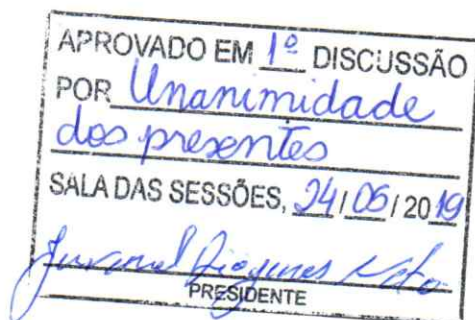 APROVADO EM 1º DISCUSSÃO
POR Unanimidade
dos presentes
SALA DAS SESSÕES, 24/06/2019
Diógenes
PRESIDENTE